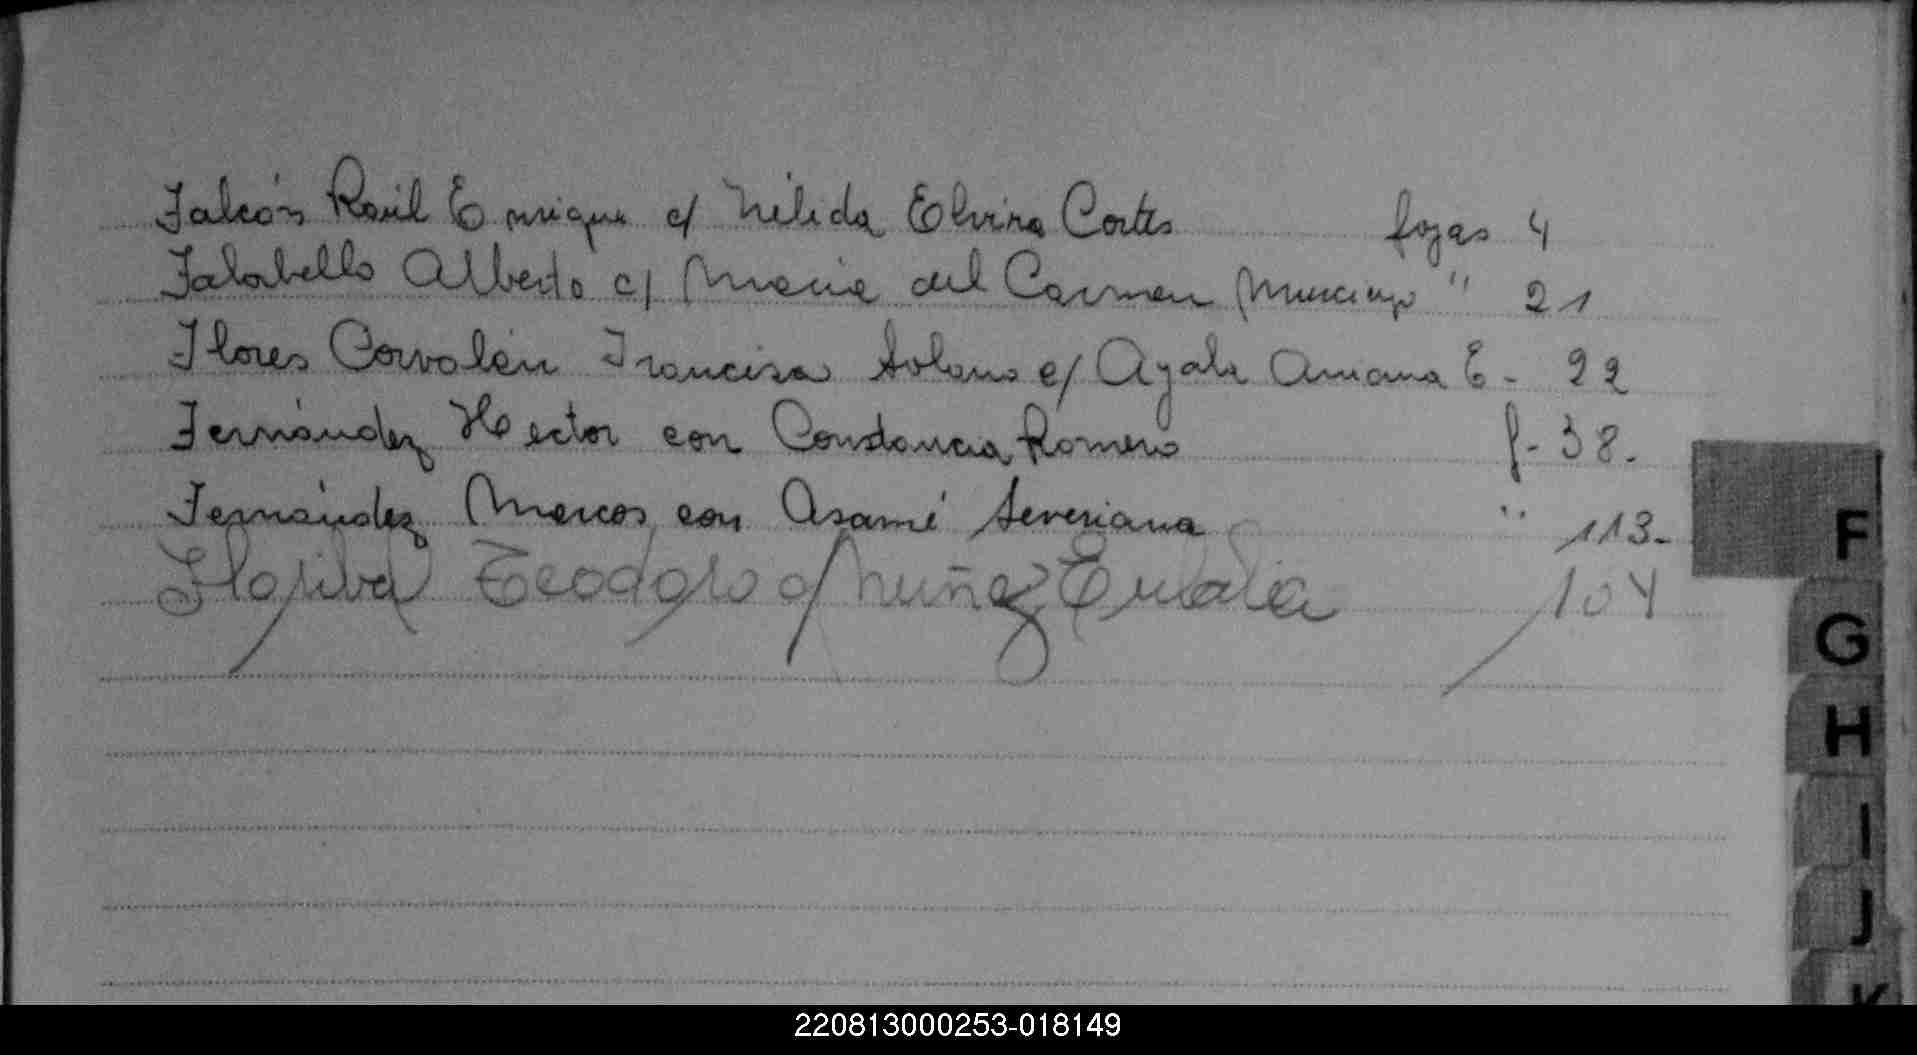 Falcón Raúl Enrique c/ Nélida Elvira Cortes fojas 4
Falabella Alberto c/ Maria del Carmen " 21
Flores Corvalán Francisco Solano c/ Ayala Amama E - 22
Fernández Hector con Constancia Romero f- 38.
Fernández Marcos con Asamé Severiana " 113-
Teodoro c/ Nuñez Eulalia 104
F
G
H
I
J
K
220813000253-018149